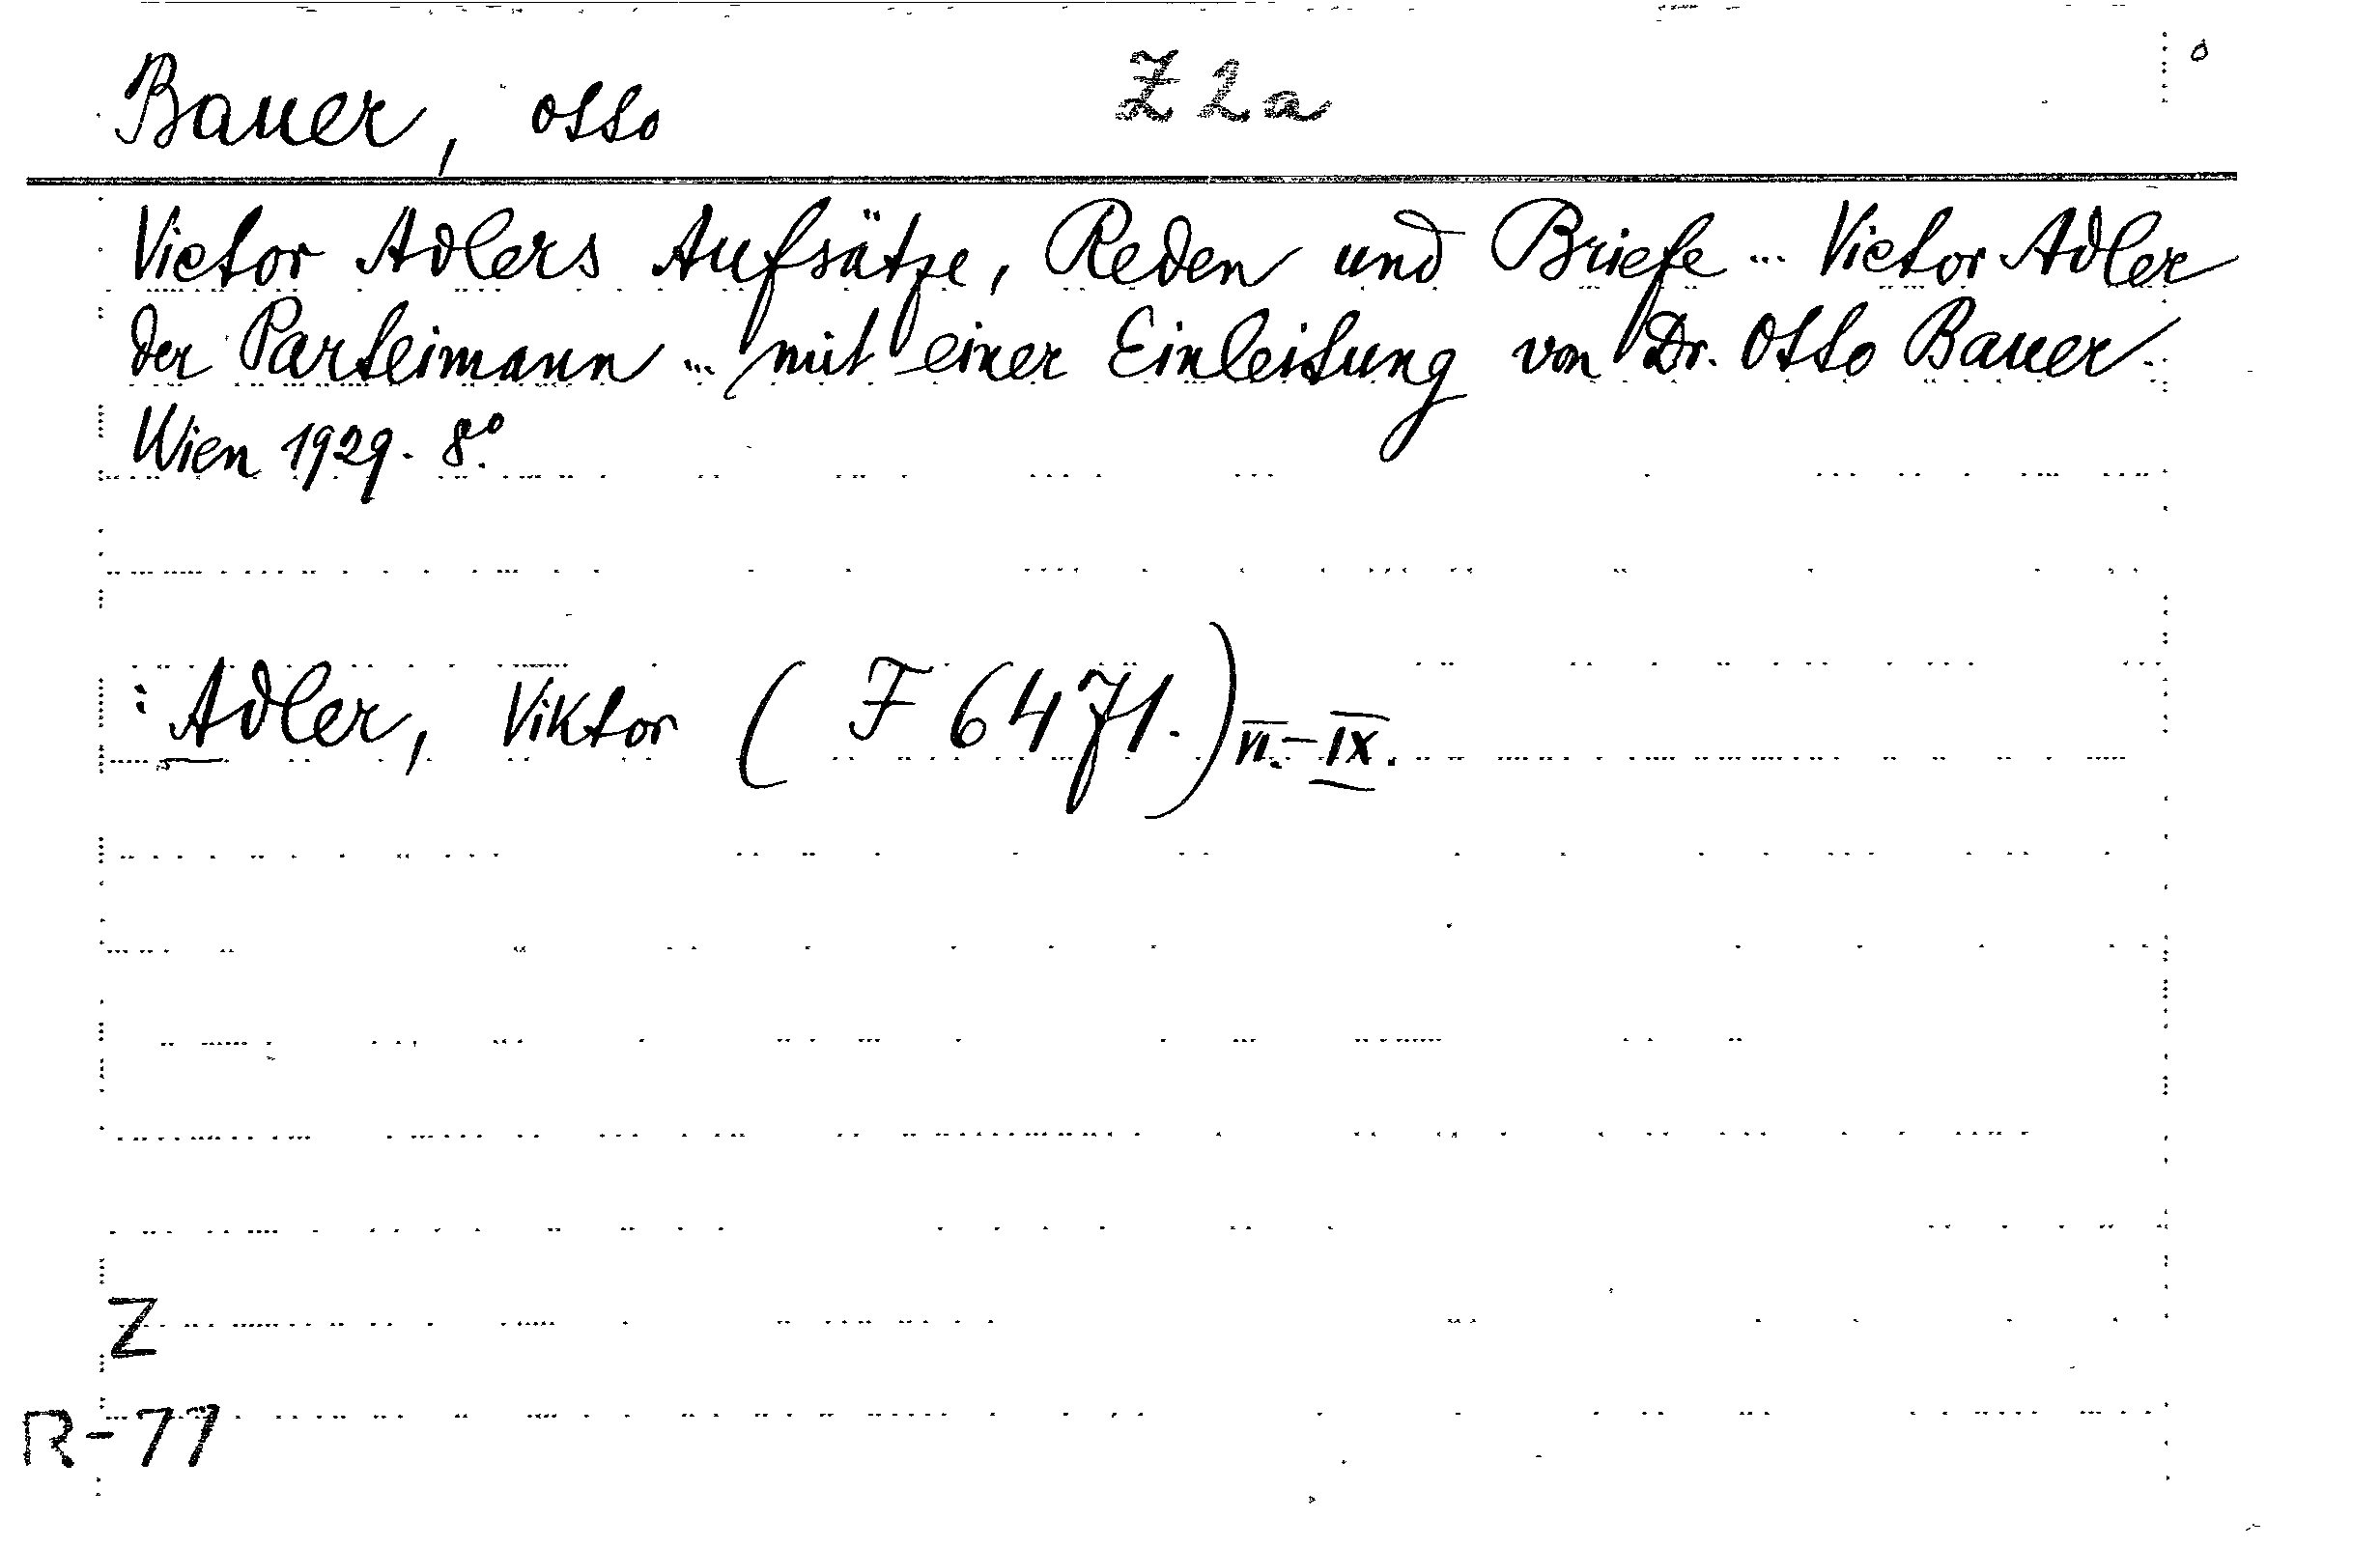 Bauer, Otto Z 2a
Victor Adlers Aufsätze, Reden und Briefe ... Victor Adler
der Parteimann ... mit einer Einleitung von Dr. Otto Bauer.
Wien 1929. 8°.
: Adler, Viktor (F 6471.) VI.-IX.
Z
R-77